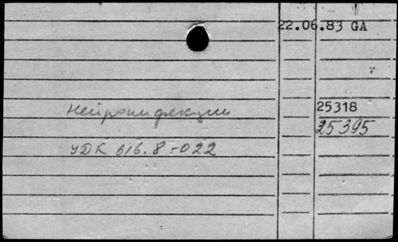 22.06.83 GA
Нейроинфекции
25318
25395
УДК 616.8-022